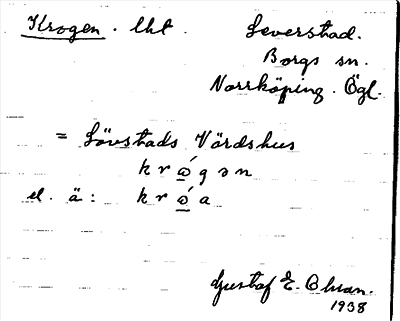 Krogen. lht. Leverstad.
Borgs sn.
Norrköping. Ögl.
= Lövstads Värdshus
k r ó̲ g ə n
el. ä: k r ó̲ a
Gustaf E. Ohsan.
1938